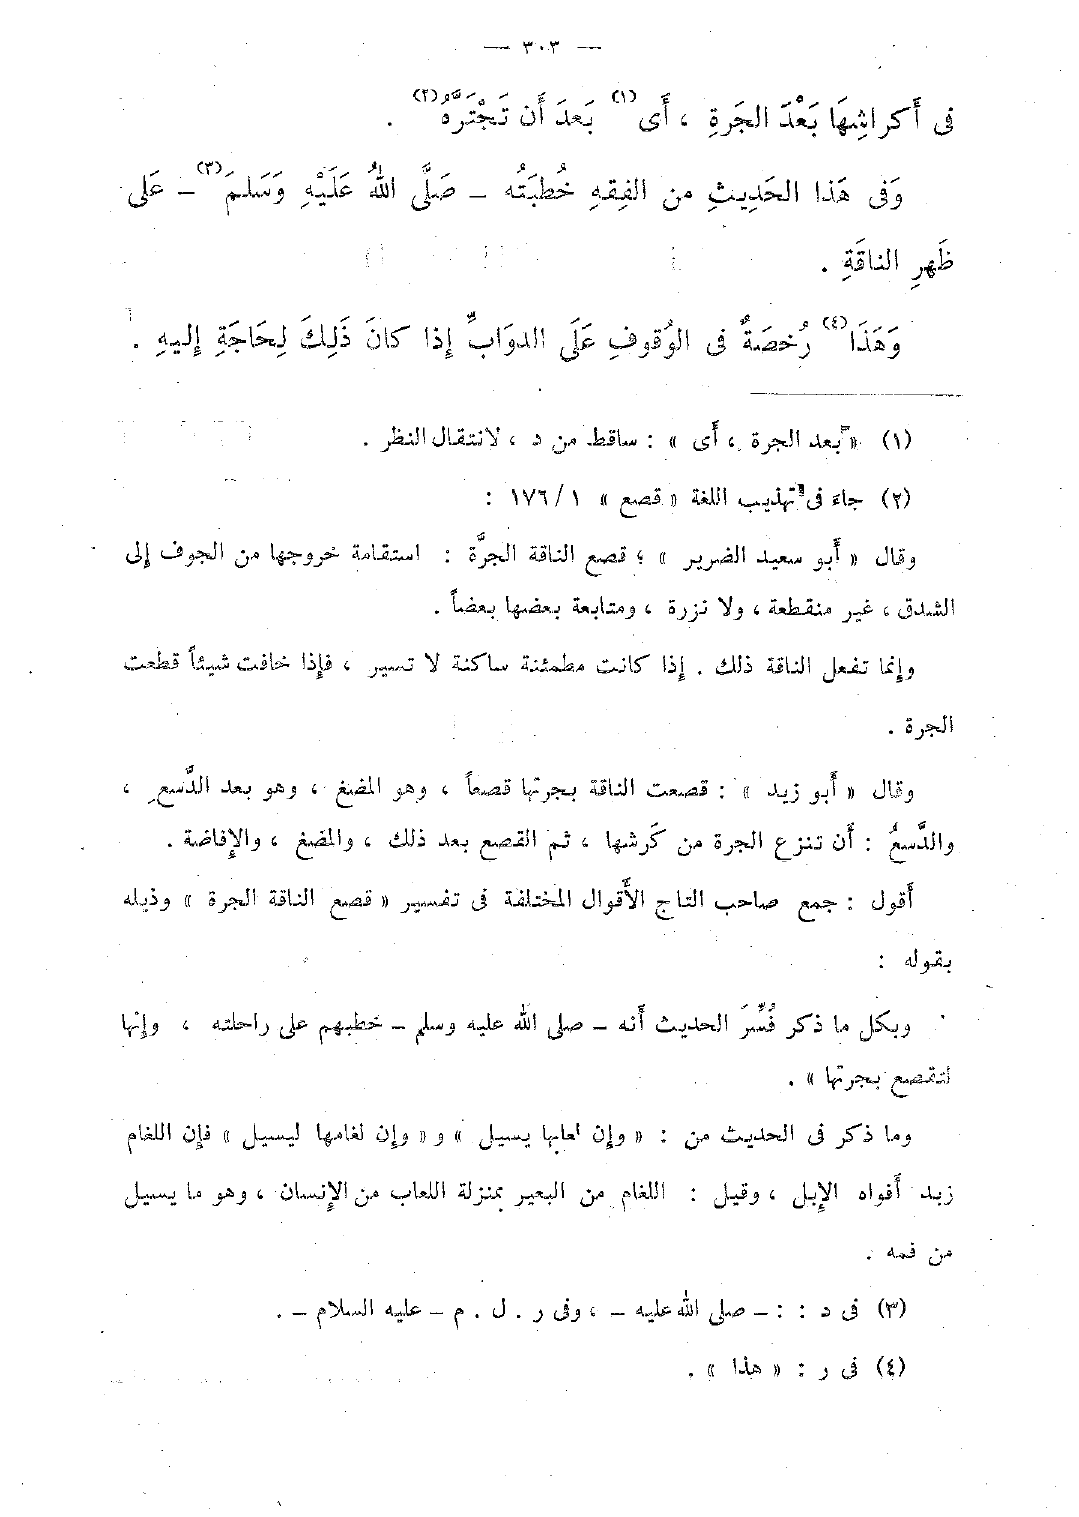 — ٣٠٣ —
فى أَكراشِهَا بَعْدَ الجَرةِ ، أَى (١) بَعدَ أَن تَجْتَرَّهُ (٢) .
وَفى هَذا الحَدِيثِ من الفِقهِ خُطبَتُه – صَلَّى اللهُ عَلَيْهِ وَسَلمَ (٣) – عَلى
ظَهرِ الناقَةِ .
وَهَذَا (٤) رُخصَةٌ فى الوُقوفِ عَلَى الدوَابِّ إِذا كانَ ذَلِكَ لِحَاجَةِ إِليهِ .
(١) « بعد الجرة ، أَى » : ساقط من د ، لانتقال النظر .
(٢) جاء فى تهذيب اللغة « قصع » ١/ ١٧٦ :
وقال « أَبو سعيد الضرير » ؛ قصع الناقة الجرَّة : استقامة خروجها من الجوف إلى
الشدق ، غير منقطعة ، ولا نزرة ، ومتابعة بعضها بعضاً .
وإنما تفعل الناقة ذلك . إذا كانت مطمئنة ساكنة لا تسير ، فإذا خافت شيئاً قطعت
الجرة .
وقال « أَبو زيد » : قصعت الناقة بجرتها قصعاً ، وهو المضغ ، وهو بعد الدَّسع ،
والدَّسعُ : أَن تنزع الجرة من كَرشها ، ثم القصع بعد ذلك ، والمضغ ، والإفاضة .
أَقول : جمع صاحب التاج الأَقوال المختلفة فى تفسير « قصع الناقة الجرة » وذيله
بقوله :
وبكل ما ذكر فُسِّرَ الحديث أَنه – صلى الله عليه وسلم – خطبهم على راحلته ، وإنها
لتقصع بجرتها » .
وما ذكر فى الحديث من : « وإن لعابها يسيل » و « وإن لغامها ليسيل » فإن اللغام
زبد أَفواه الإبل ، وقيل : اللغام من البعير بمنزلة اللعاب من الإنسان ، وهو ما يسيل
من فمه .
(٣) فى د : : – صلى الله عليه – ، وفى ر . ل . م – عليه السلام – .
(٤) فى ر : « هذا » .